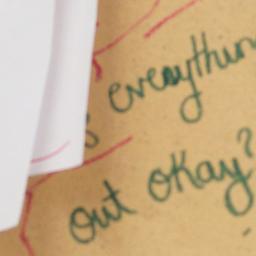 everything
out okay?